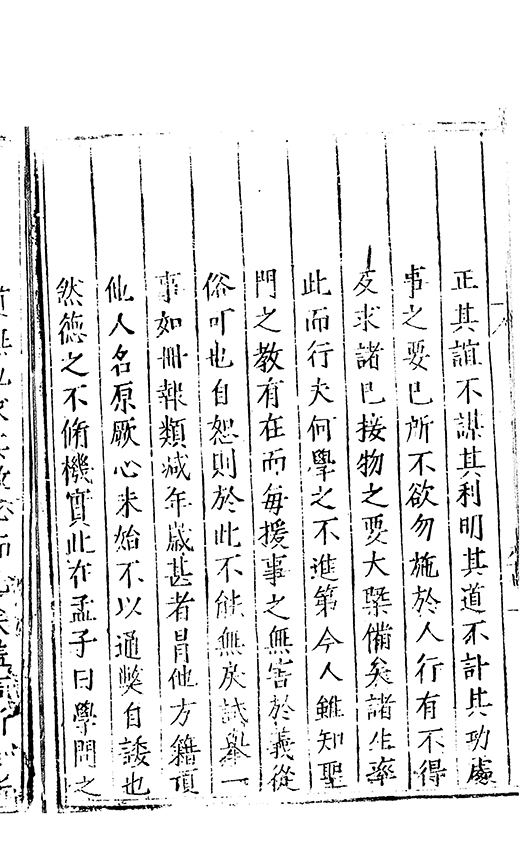 正其誼不謀其利明其道不計其功處
事之要已所不欲勿施於人行有不得
反求諸已接物之要大槩備矣諸生率
此而行夫何學之不進第今人雖知聖
門之教有在而每援事之無害於義從
俗可也自恕則於此不能無戾試舉一
事如冊報類减年嵗甚者冐他方籍頂
他人名原厥心未始不以通獘自諉也
然德之不脩機實此在孟子曰學問之